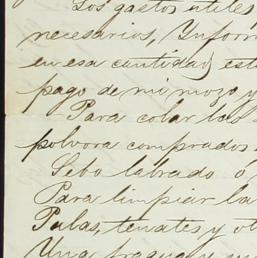 Los gastos utiles
necesarios, Ynfor
en esa cantidad, est
pago de mi mozo y
Para colar las
polvora comprados
Sebo labrado ó
Para limpiar la
Palas, tenates y ot
Una fragua y